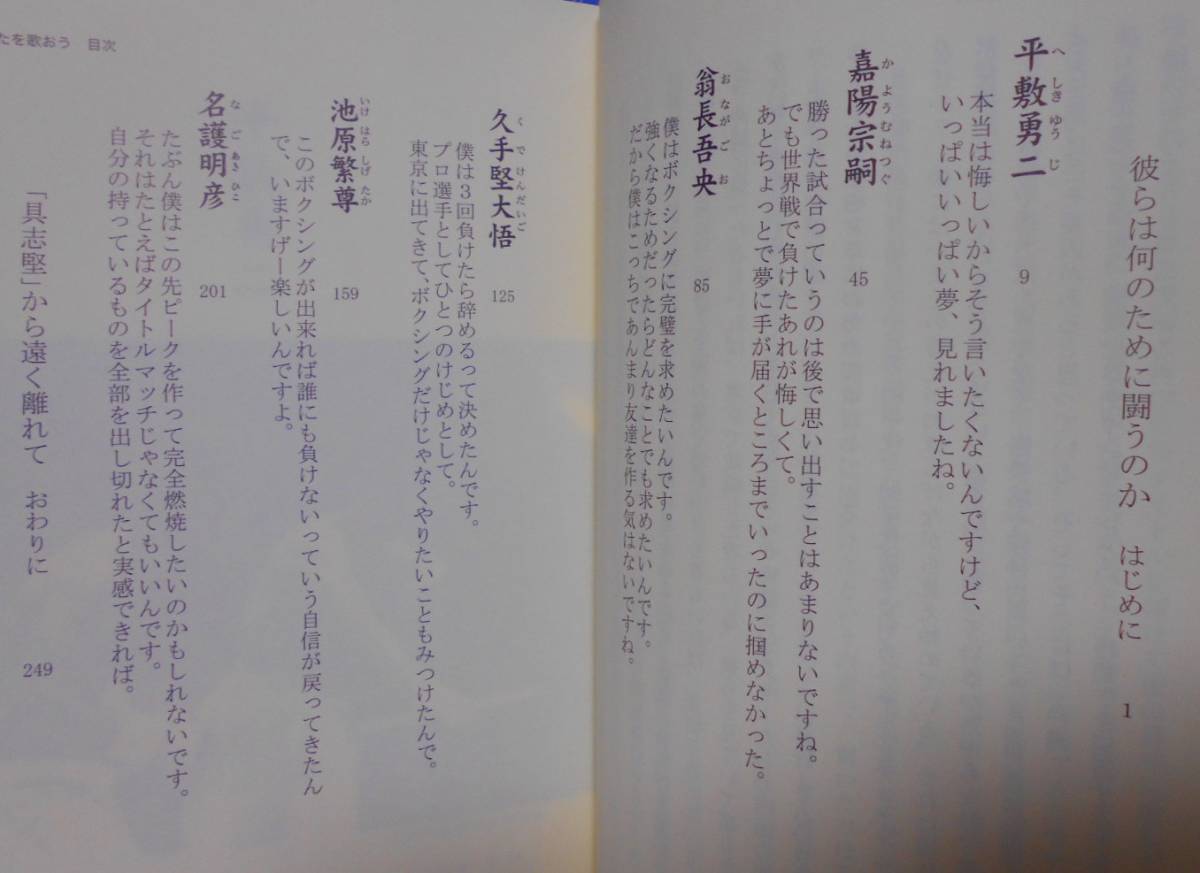 彼らは何のために闘うのか　はじめに　1
平敷勇二　9
へしきゆうじ
本当は悔しいからそう言いたくないんですけど、
いっぱいいっぱい夢、見れましたね。
嘉陽宗嗣　45
かようむねつぐ
勝った試合っていうのは後で思い出すことはあまりないですね。
でも世界戦で負けたあれが悔しくて。
あとちょっとで夢に手が届くところまでいったのに掴めなかった。
翁長吾央　85
おながごお
僕はボクシングに完璧を求めたいんです。
強くなるためだったらどんなことでも求めたいんです。
だから僕はこっちであんまり友達を作る気はないですね。
久手堅大悟　125
くでけんだいご
僕は3回負けたら辞めるって決めたんです。
プロ選手としてひとつのけじめとして。
東京に出てきて、ボクシングだけじゃなくやりたいこともみつけたんで。
池原繁尊　159
いけはらしげたか
このボクシングが出来れば誰にも負けないっていう自信が戻ってきたん
で、いますげー楽しいんですよ。
名護明彦　201
なごあきひこ
たぶん僕はこの先ピークを作って完全燃焼したいのかもしれないです。
それはたとえばタイトルマッチじゃなくてもいいんです。
自分の持っているものを全部を出し切れたと実感できれば。
「具志堅」から遠く離れて　おわりに　249
たを歌おう　目次